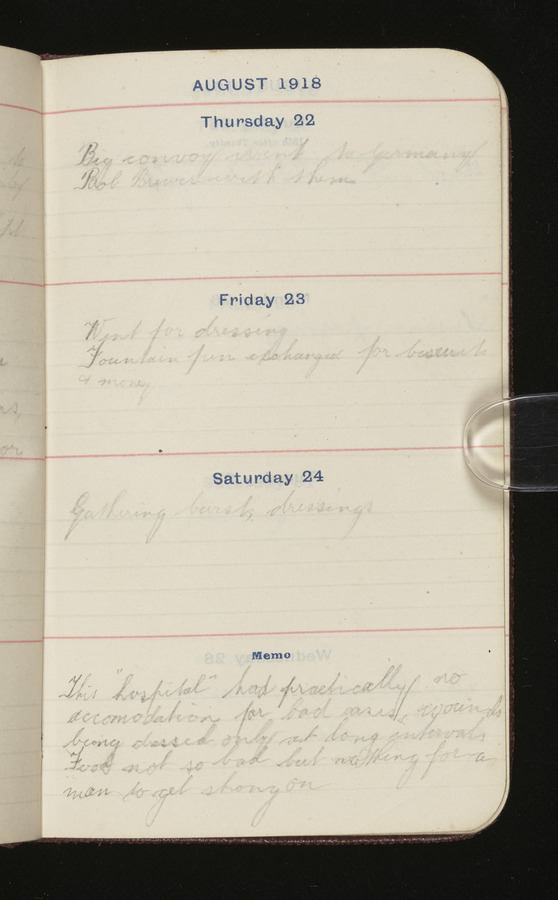 AUGUST 1918
Thursday 22
Big convoy went to Germany
Bob Brewer with them
Friday 23
Went for dressing
Fountain pen exchanged for biscuits
& money
Saturday 24
Gathering bursts, dressings
Memo
This "hospital" had practically no
accomodation for bad cases, wounds
being dressed only at long intervals
Food not so bad but nothing for a
man to get strong on